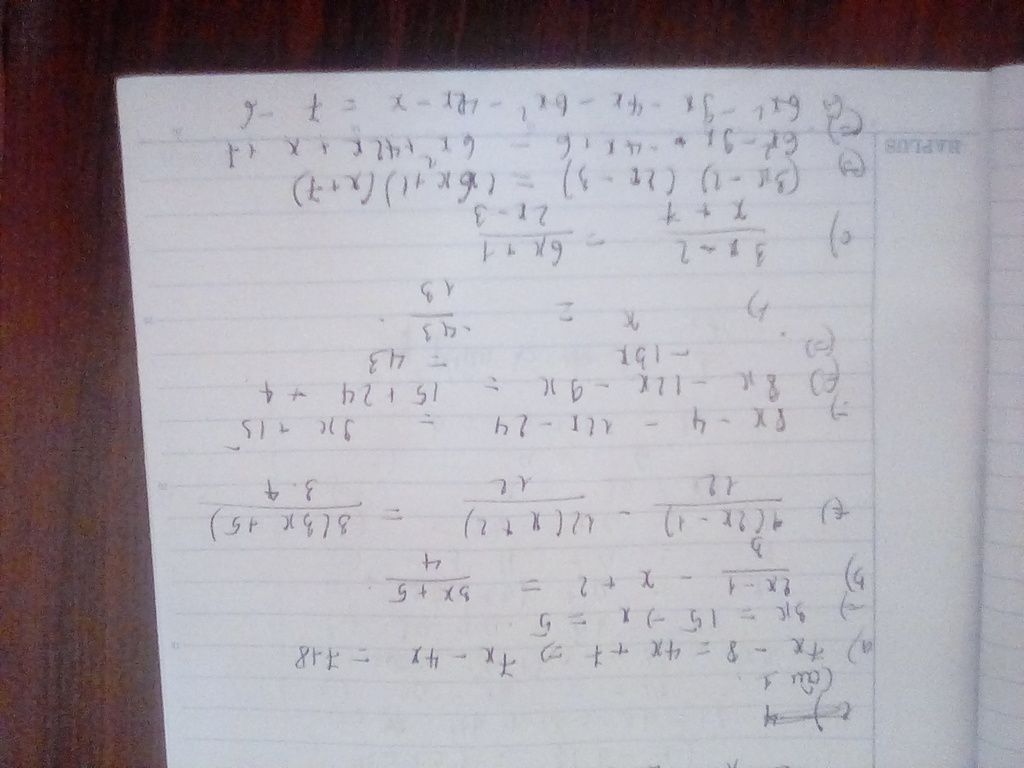 Câu 1
a) 7x - 8 = 4x + 7 => 7x - 4x = 7+8
=) 3x = 15 -> x = 5
b) 2x-1/3 - x + 2 = 3x+5/4
(=) 4(2x-1)/12 - 12(x+2)/12 = 3(3x+5)/3.4
=) 8x - 4 - 12x - 24 = 9x + 15
(=) 8x - 12x - 9x = 15 + 24 + 4
(=) - 13x = 43
x = -43/13
c) 3x-2/x+7 = 6x+1/2x-3
(=) (3x-2) (2x-3) = (6x+1) (x+7)
6x² - 9x - 4x + 6 = 6x² + 42x + x + 7
(=) 6x² - 9x - 4x - 6x² - 42x - x = 7 - 6
HAPLUS